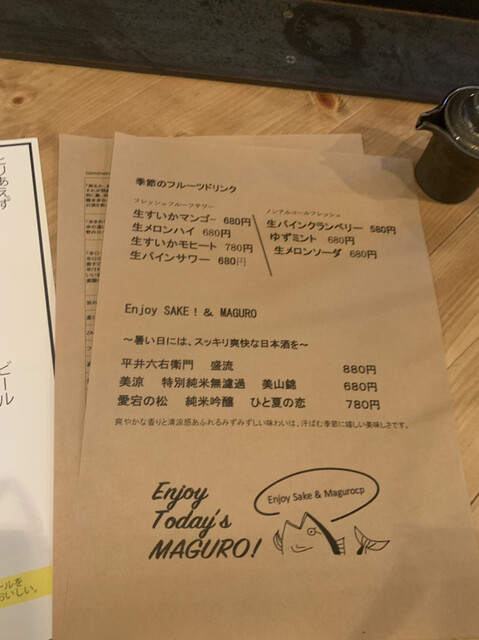 季節のフルーツドリンク
フレッシュフルーツサワー
生すいかマンゴー 680円
生メロンハイ 680円
生すいかモヒート 780円
生パインサワー 680円
ノンアルコールフレッシュ
生パインクランベリー 580円
ゆずミント 680円
生メロンソーダ 680円
Enjoy SAKE! & MAGURO
～暑い日には、スッキリ爽快な日本酒を～
平井六右衛門 盛流 880円
美凉 特別純米無濾過 美山錦 680円
愛宕の松 純米吟醸 ひと夏の恋 780円
爽やかな香りと清涼感あふれるみずみずしい味わいは、汗ばむ季節に嬉しい美味しさです。
Enjoy
Today's
MAGURO!
Enjoy Sake & Magurocp
とりあえず
ビール
ールを
おいしい。